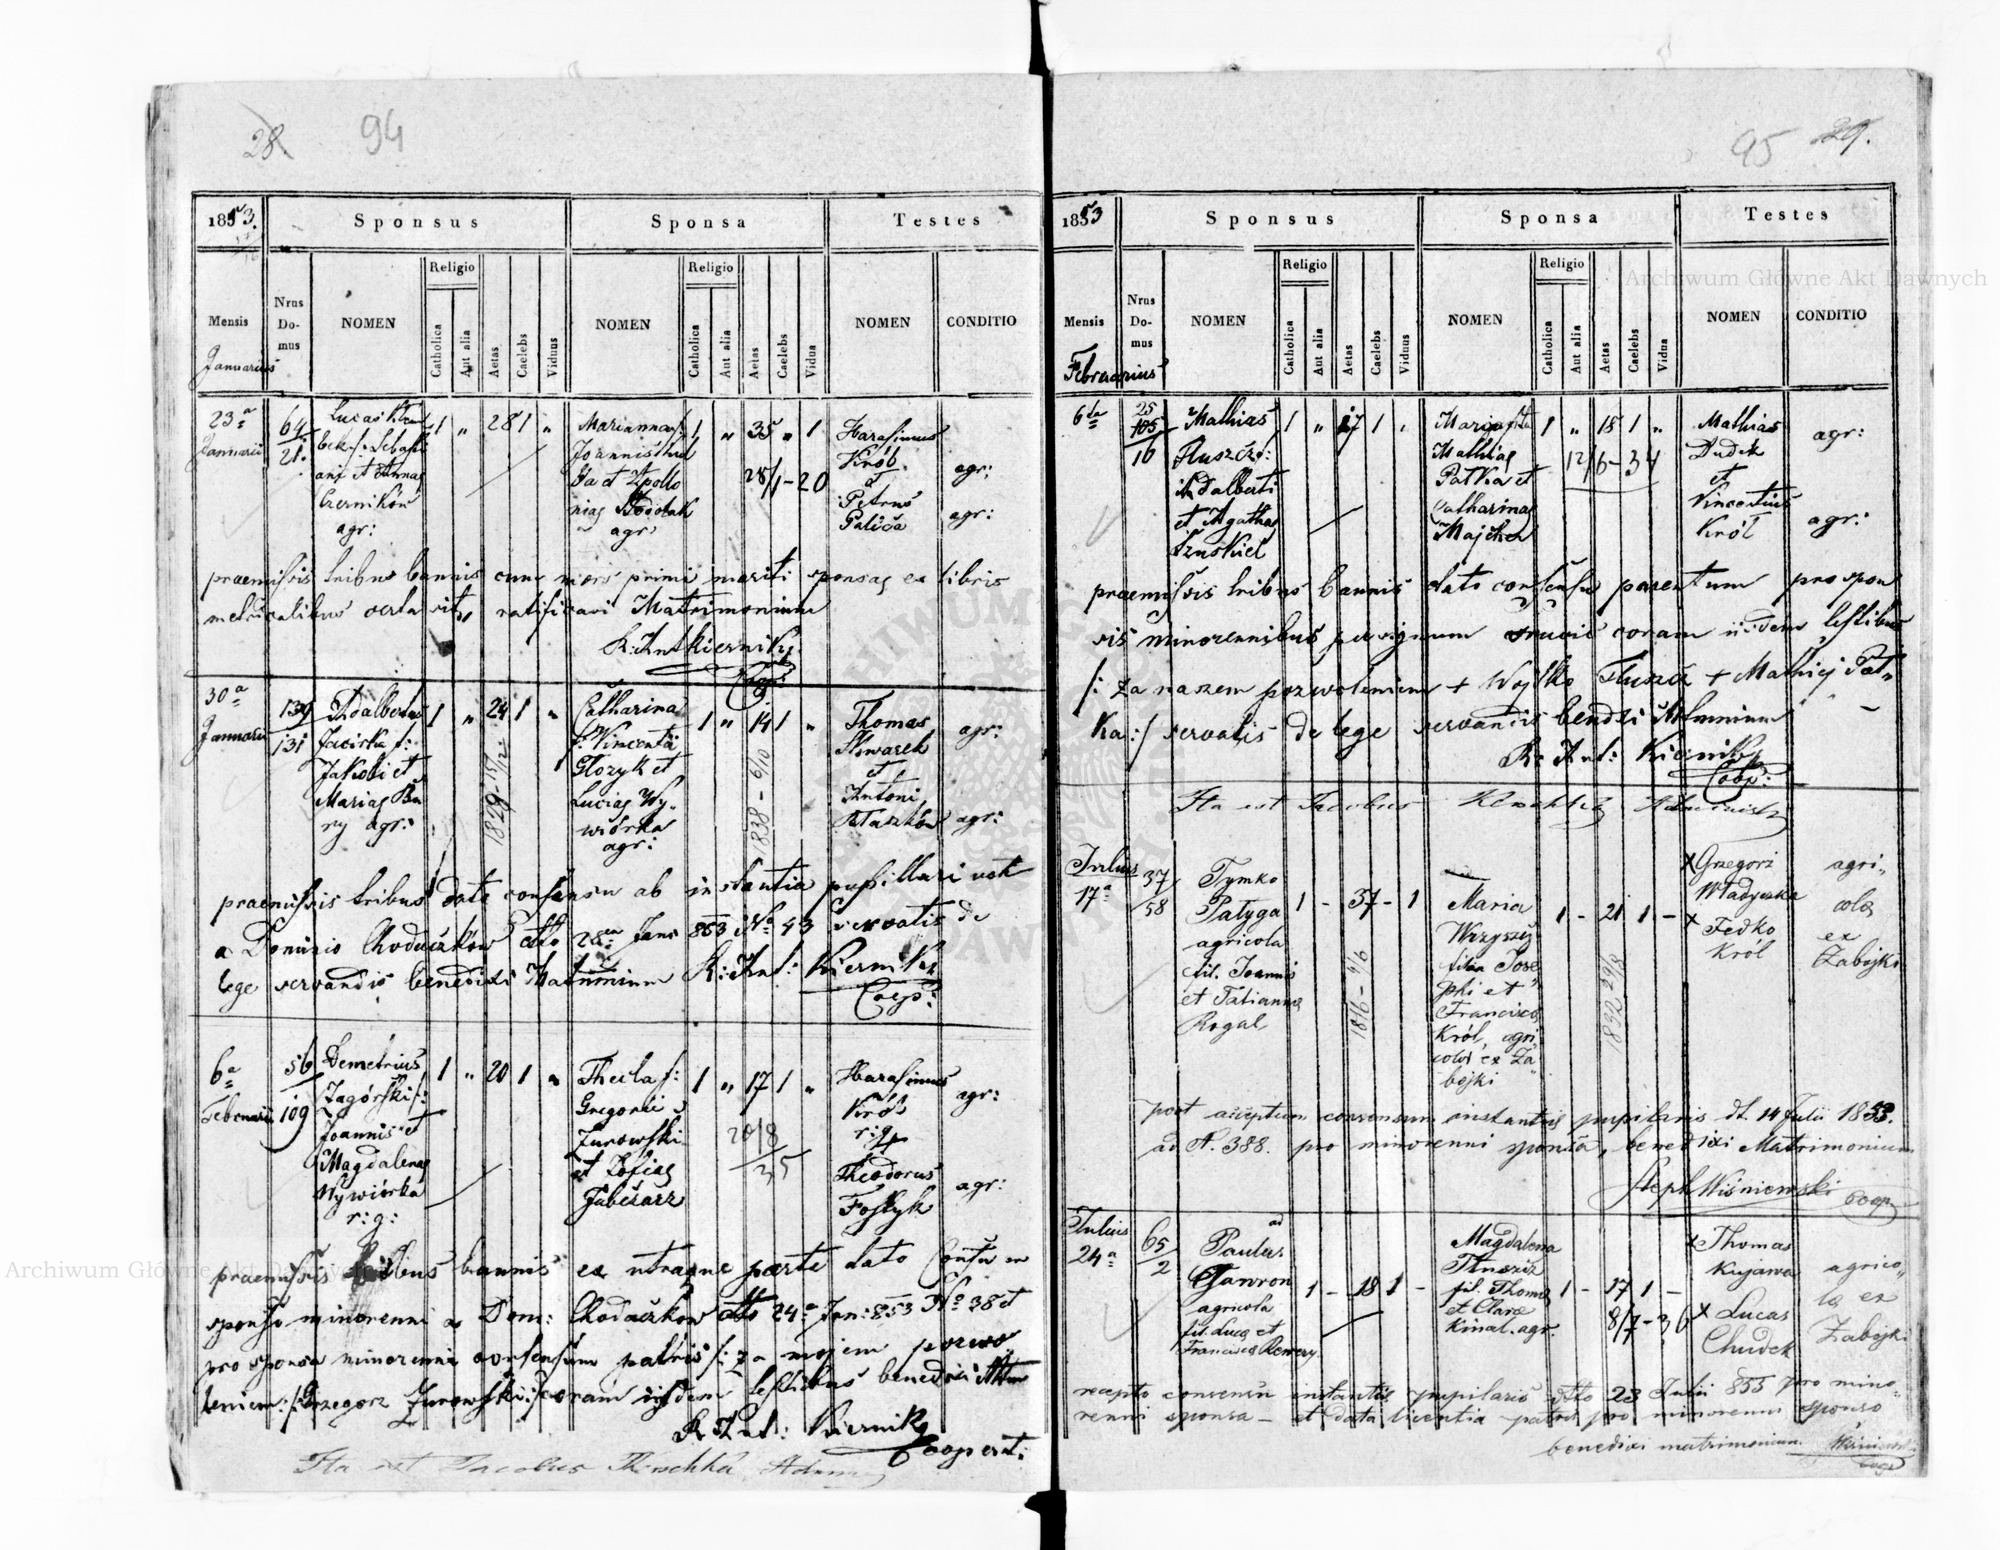 28. 94
1853. Sponsus Sponsa Testes
Mensis Nrus Domus NOMEN Religio Catholica Aut alia Aetas Caelebs Viduus NOMEN Religio Catholica Aut alia Aetas Caelebs Vidua NOMEN CONDITIO
Januarius
23a Januarii
64
21.
Lucas
bek f: Sebasti
ani et Annae
Czerników
agr:
1 " 28 1 "
Marianna f:
Joannis
et Apollo
niae Bodnak
agr:
1 " 35 " 1
28/1-20
Harasimus
Król
et
Petrus
Galica
agr:
agr:
praemissis tribus bannis cum mors primi mariti sponsae ex libris
metricalibus ratificavi Matrimonium
R: Ant Kiernik
Coop:
30a Januarii
139
131
Adalbertus
Jacirka f:
Jakobi et
Mariae Bu
ry agr:
1 " 24 1 "
1829 15/12
Catharina
f: Vincentii
Glozyk et
Luciae Wy-
wiórka
agr:
1 " 14 1 "
1838 - 6/10
Thomas
Skwarek
et
Antoni
Staszków
agr:
agr:
praemissis tribus dato consensu ab instantia pupillari
a Dominio Chodaczków dtto 28va Jan: 853 No 43 servatis de
lege servandis benedixi Matrimonium R: Ant: Kiernik
Coop:
6a Februarii
56
109
Demetrius
Zagórski f:
Joannis et
Magdalenae
Wywiórka
r: g:
1 " 20 1 "
Thecla f:
Gregorii
Zurowski
et Zofiae
Gabérarz
1 " 17 1 "
20/8
35
Harasimus
Król
r: g:
Theodorus
Foştyk
agr:
agr:
praemissis bannis ex utraque parte dato Consensu
sponso minorenni a Dom: Chodaczków dtto 24a Jan: 853 No 38 et
pro sponsa minorenni consensum patris /: za mojem pozwo
leniem :/ Grzegorz Zurowski coram iisdem testibus benedixi
R Ant: Kiernik
Cooperat:
Ita est Jacobus
95 29.
1853 Sponsus Sponsa Testes
Mensis Nrus Domus NOMEN Religio Catholica Aut alia Aetas Caelebs Viduus NOMEN Religio Catholica Aut alia Aetas Caelebs Vidua NOMEN CONDITIO
Februarius
6ta
25
105
16
Mathias
Tłuszcz f:
Adalberti
et Agathae
Szuskiel
1 " 17 1 "
Maria filia
Mathiae
Patka et
Catharinae
Majcher
1 " 18 1 "
12/6-34
Mathias
Dudek
et
Vincentius
Król
agr:
agr:
praemissis tribus bannis dato consensu parentum pro spon
sis minorennibus per signum crucis coram iisdem testibus
/: za naszem pozwoleniem + Wojtko Tłuszcz + Mathiej Pat-
ka :/ servatis de lege servandis benedixi
R: Ant: Kiernik
Coop:
Ita est Jacobus
Julius
17a
37
58
Tymko
Patyga
agricola
fil. Joannis
et Tatianna
Rogal
1 - 37 - 1
1816 - 4/6
Maria
Wrzyszcz
filia Jose
phi et
Francisca
Król, agri
cola ex Za
bojki
1 - 21 1 -
1832 29/8
x Grzegorz
Władyczka
x Fedko
Król
agri-
cola
ex
Zabojki
post acceptum consensum instantiis pupilaris dt. 14 Julii 1853.
ad N. 388. pro minorenni sponsa, benedixi Matrimonium
Steph Wiśniewski Coop
Julius
24a
65
2
Paulus
Gawron
agricola
fil. Luca et
Francisca Rewery
1 - 18 1 -
Magdalena
Tłuszcz
fil. Thoma
et Clara
Kinal. agr.
1 - 17 1 -
8/7-36
x Thomas
Kujawa
x Lucas
Chudek
agrico-
la ex
Zabojki
recepto consensu instantiis pupilaris dtto 23 Julii 853 pro mino-
renni sponsa - et data licentia patris pro minorenni sponso
benedixi matrimonium.
Archiwum Główne Akt Dawnych
Archiwum Główne Akt Dawnych